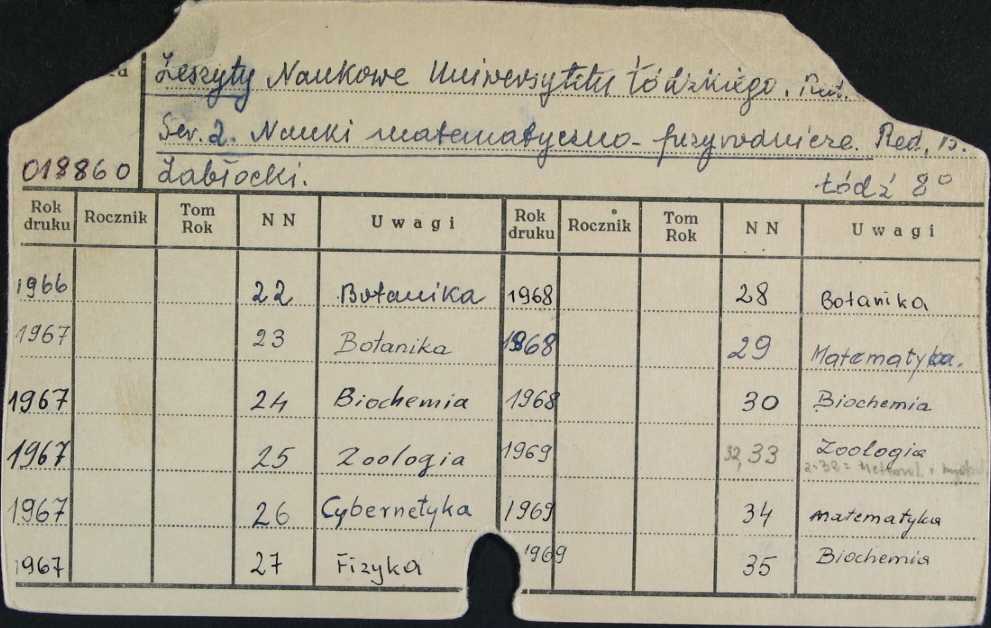 Zeszyty Naukowe Uniwersytetu Łódzkiego.
Ser. 2. Nauki matematyczno-przyrodnicze. Red. B.
018860 Zabłocki. Łódź 8°
Rok druku Rocznik Tom Rok NN Uwagi Rok druku Rocznik Tom Rok NN Uwagi
1966 22 Botanika 1968 28 Botanika
1967 23 Botanika 1968 29 Matematyka.
1967 24 Biochemia 1968 30 Biochemia
1967 25 Zoologia 1969 32, 33 Zoologia
1967 26 Cybernetyka 1969 34 Matematyka
1967 27 Fizyka 1969 35 Biochemia